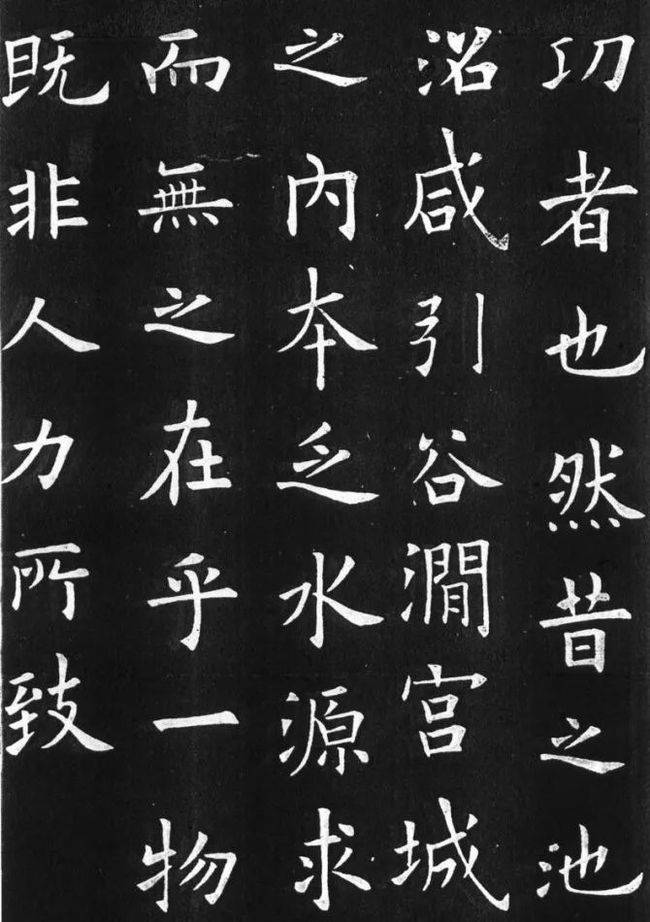 功者也然昔之池
沼咸引谷澗宫城
之内本乏水源求
而無之在乎一物
既非人力所致